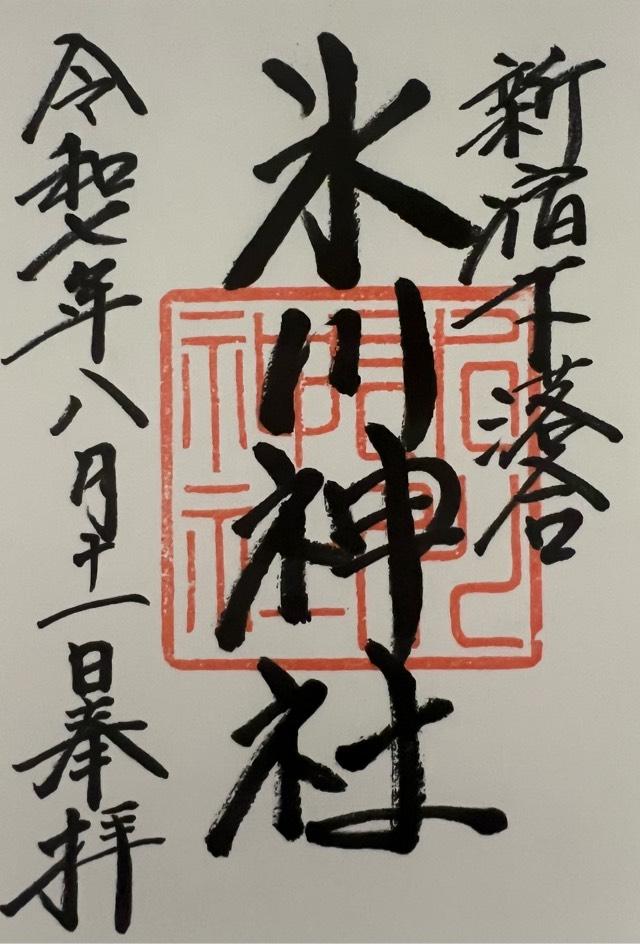 新宿下落合
氷川神社
令和七年八月十一日奉拝